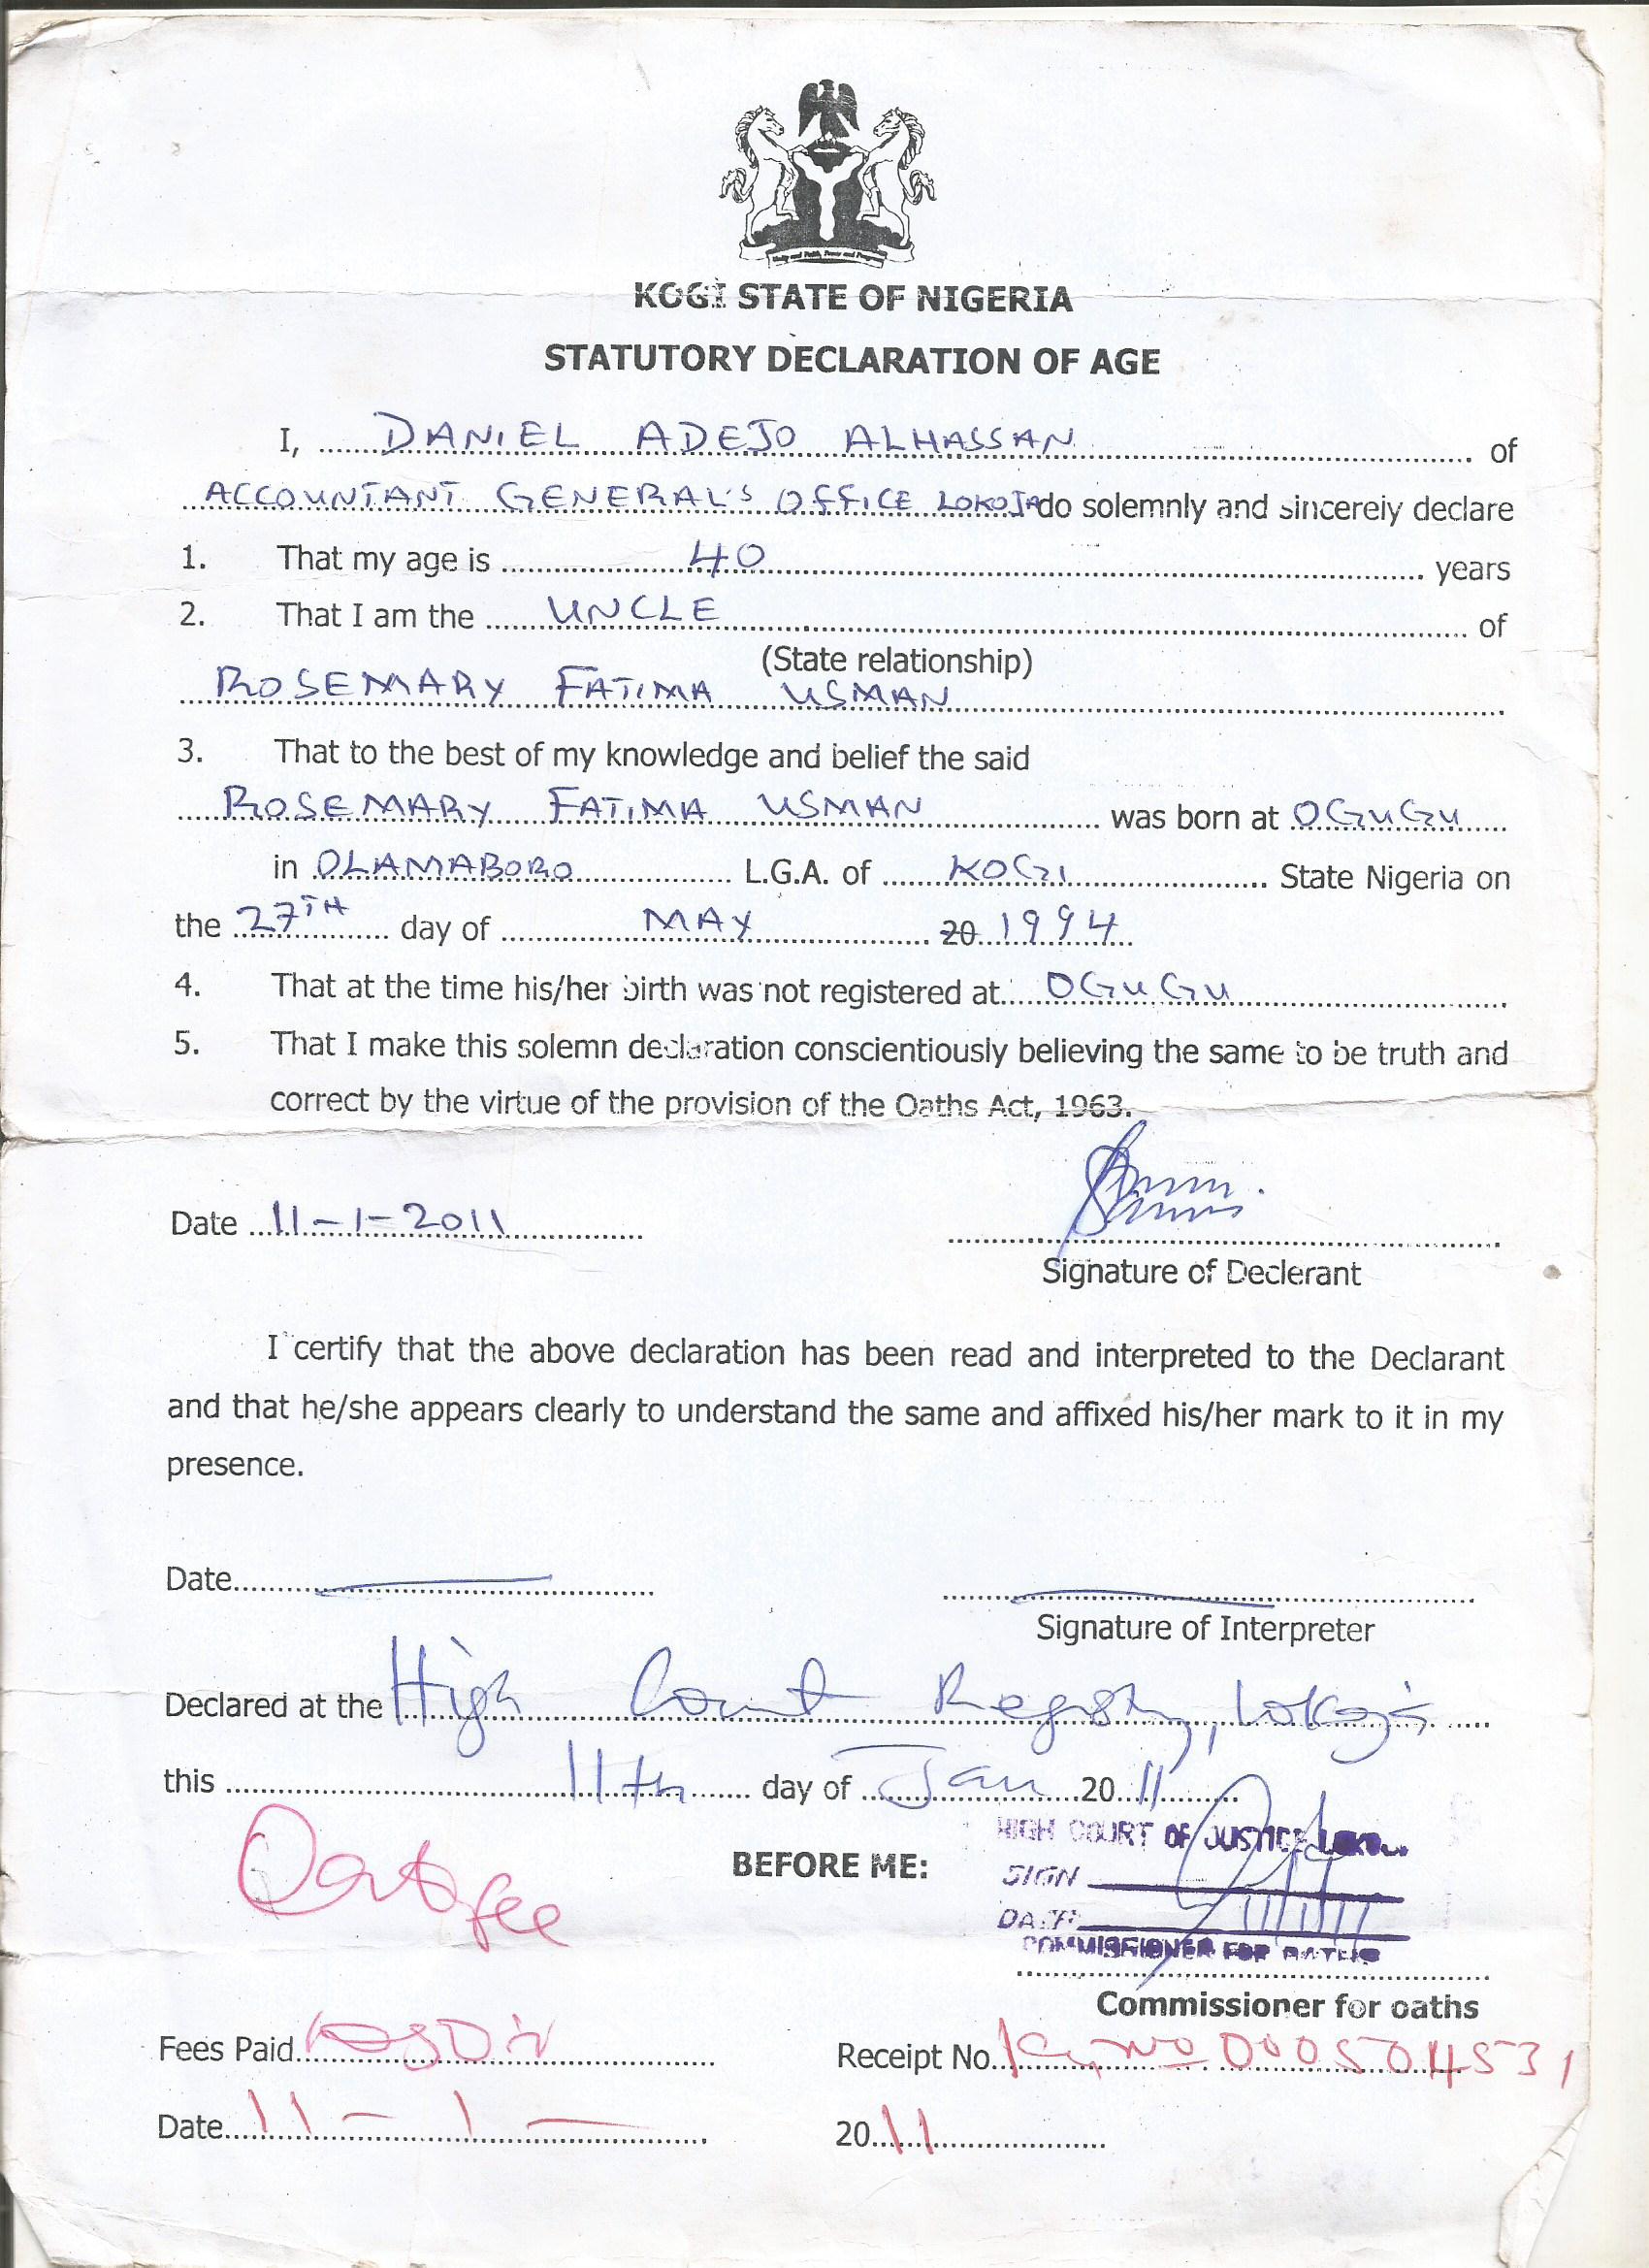 KOGI STATE OF NIGERIA
STATUTORY DECLARATION OF AGE
I, DANIEL ADEJO ALHASSAN of
ACCOUNTANT GENERAL'S OFFICE LOKOJA do solemnly and sincerely declare
1. That my age is 40 years
2. That I am the UNCLE of
(State relationship)
ROSEMARY FATIMA USMAN
3. That to the best of my knowledge and belief the said
ROSEMARY FATIMA USMAN was born at OGUGU
in OLAMABORO L.G.A. of KOGI State Nigeria on
the 27TH day of MAY 20 1994
4. That at the time his/her birth was not registered at OGUGU
5. That I make this solemn declaration conscientiously believing the same to be truth and
correct by the virtue of the provision of the Oaths Act, 1963.
Date 11-1-2011
Signature of Declerant
I certify that the above declaration has been read and interpreted to the Declarant
and that he/she appears clearly to understand the same and affixed his/her mark to it in my
presence.
Date
Signature of Interpreter
Declared at the High Court Registry, Lokoja
this 11th day of Jan 2011
HIGH COURT OF JUSTICE
BEFORE ME:
SIGN
DATE 11/1/11
COMMISSIONER FOR OATHS
Commissioner for oaths
fee
Fees Paid
Receipt No. 000504531
Date 11 - 1 - 2011